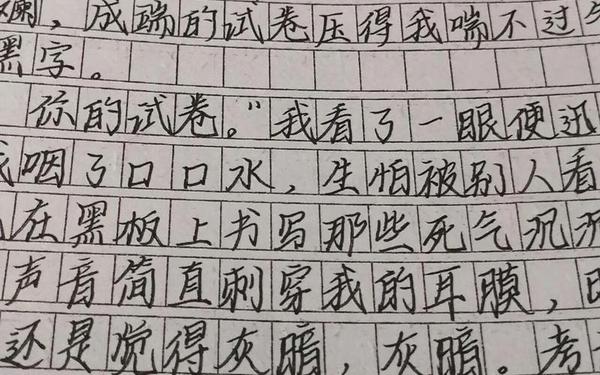 成端的试卷压得我喘不过
黑字。
你的试卷。"我看了一眼便迅
我咽了口口水，生怕被别人看
在黑板上书写那些死气沉沉
声音简直刺穿我的耳膜，
还是觉得灰暗，灰暗。考